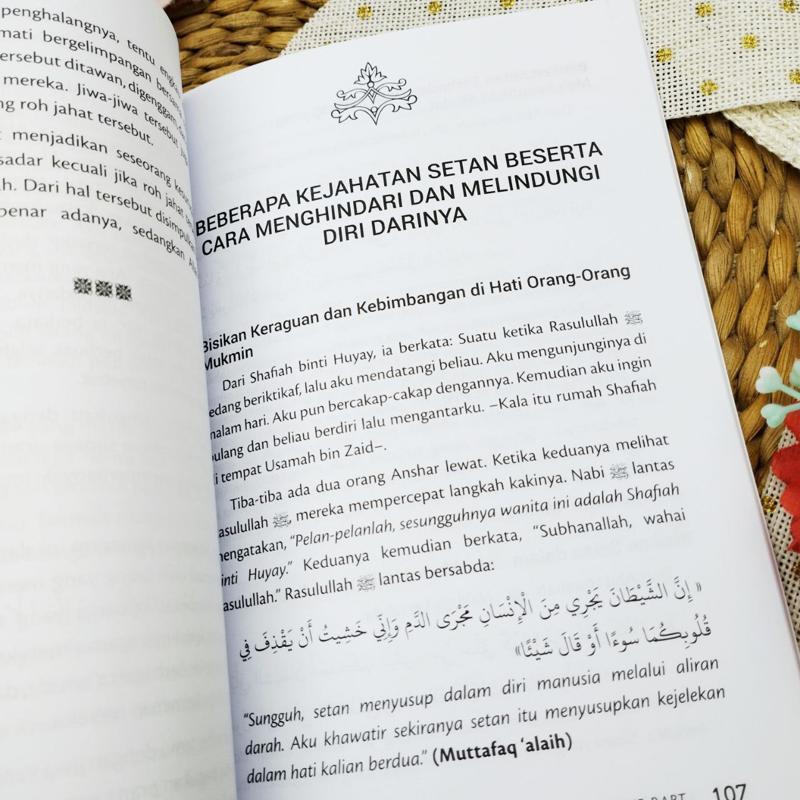 penghalangnya, tentu
mati bergelimpangan
tersebut ditawan, digenggam,
mereka. Jiwa-jiwa tersebut
roh jahat tersebut.
menjadikan seseorang
sadar kecuali jika roh jahat
Dari hal tersebut
benar adanya, sedangkan
BEBERAPA KEJAHATAN SETAN BESERTA
CARA MENGHINDARI DAN MELINDUNGI
DIRI DARINYA
Bisikan Keraguan dan Kebimbangan di Hati Orang-Orang
Mukmin
Dari Shafiah binti Huyay, ia berkata: Suatu ketika Rasulullah ﷺ
edang beriktikaf, lalu aku mendatangi beliau. Aku mengunjunginya di
malam hari. Aku pun bercakap-cakap dengannya. Kemudian aku ingin
pulang dan beliau berdiri lalu mengantarku. –Kala itu rumah Shafiah
i tempat Usamah bin Zaid–.
Tiba-tiba ada dua orang Anshar lewat. Ketika keduanya melihat
asulullah ﷺ, mereka mempercepat langkah kakinya. Nabi ﷺ lantas
engatakan, “Pelan-pelanlah, sesungguhnya wanita ini adalah Shafiah
inti Huyay.” Keduanya kemudian berkata, “Subhanallah, wahai
asulullah.” Rasulullah ﷺ lantas bersabda:
« إِنَّ الشَّيْطَانَ يَجْرِي مِنَ الْإِنْسَانِ مَجْرَى الدَّمِ وَإِنِّي خَشِيتُ أَنْ يَقْذِفَ فِي
قُلُوبِكُمَا سُوءًا أَوْ قَالَ شَيْئًا»
“Sungguh, setan menyusup dalam diri manusia melalui aliran
darah. Aku khawatir sekiranya setan itu menyusupkan kejelekan
dalam hati kalian berdua.” (Muttafaq ‘alaih)
107